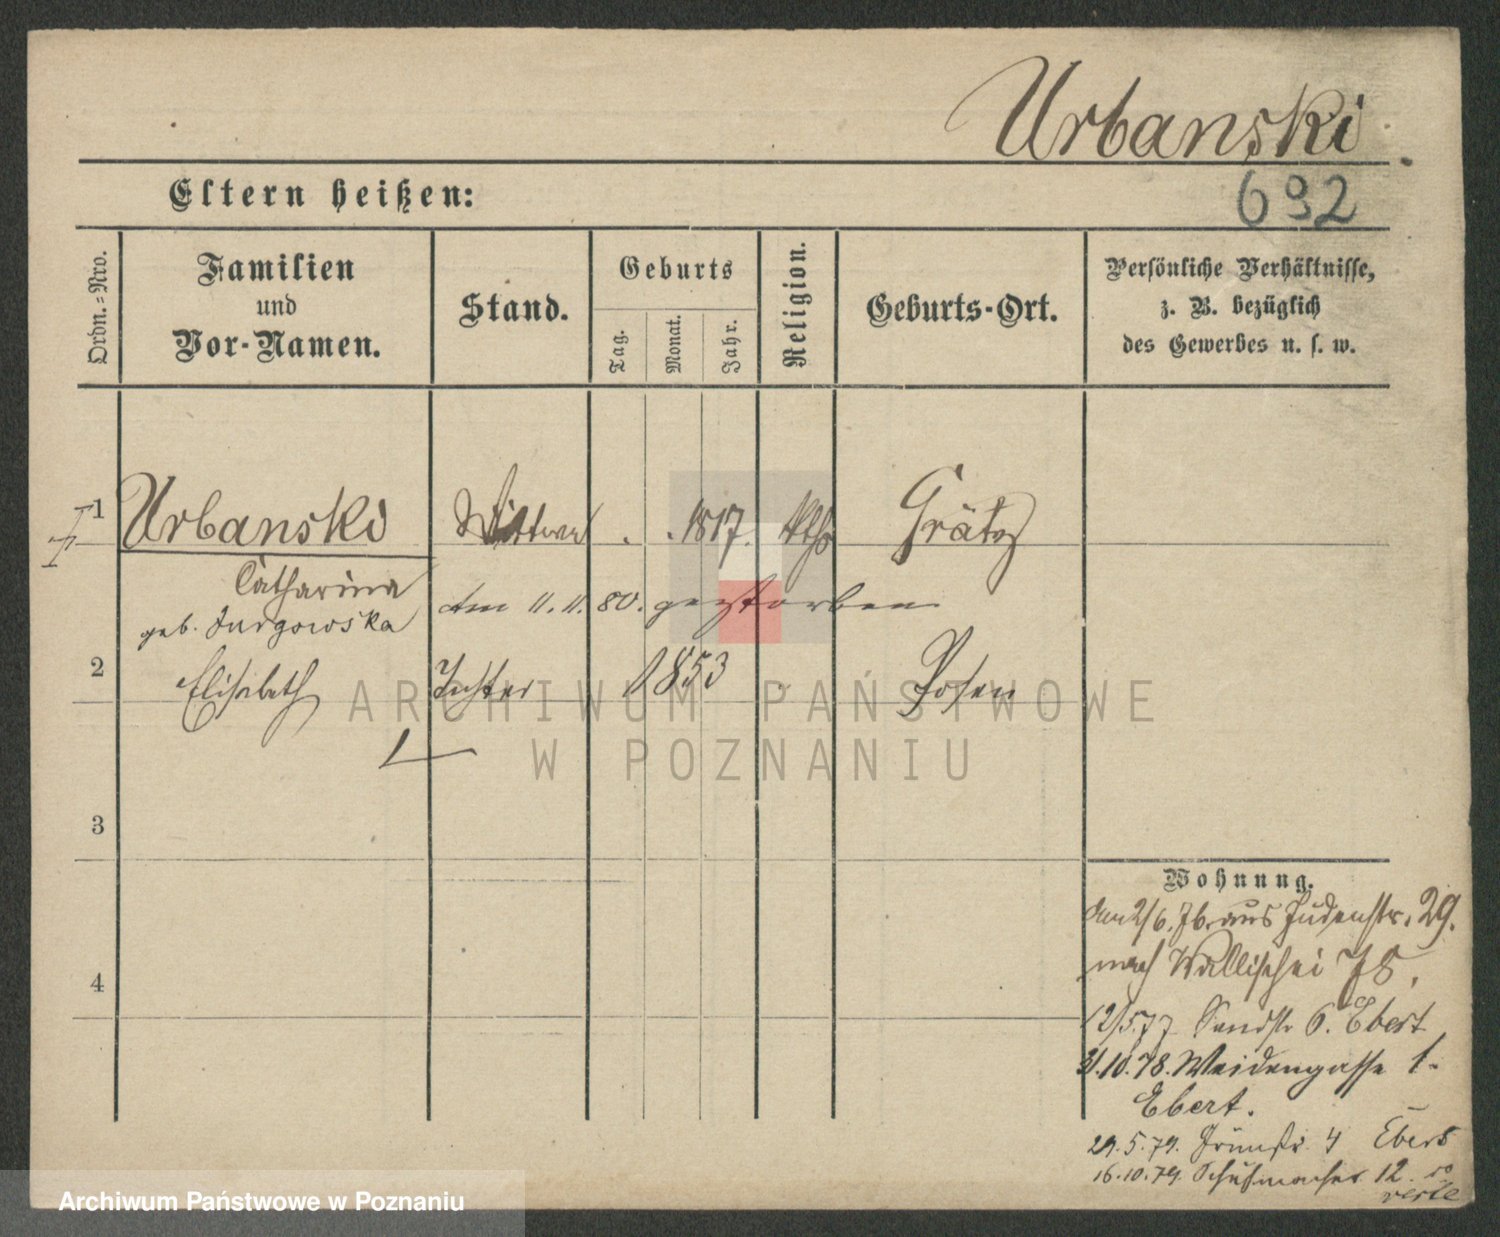 Urbanski.
692
Eltern heißen:
Ordn.=Nro.
Familien
und
Vor-Namen.
Stand.
Geburts
Tag.
Monat.
Jahr.
Religion.
Geburts-Ort.
Persönliche Verhältnisse,
z. B. bezüglich
des Gewerbes u. s. w.
1 Urbanski Wittwe . . 1817. kth Grätz
Catharina
am 11. 11. 80. gestorben
geb. Jurgowska
2 Elisabeth Tochter 1853 Posen
3
4
Wohnung.
am 2/6. 76. aus Judenstr. 29.
nach Wallischei 78.
12/5.77 Sandstr 6. Ebert
31.10.78. Weidengasse 1.
Ebert.
29.5.79. Grünstr. 4 Ebert
16.10.79. Schuhmacher 12.
verte
ARCHIWUM PAŃSTWOWE
W POZNANIU
Archiwum Państwowe w Poznaniu